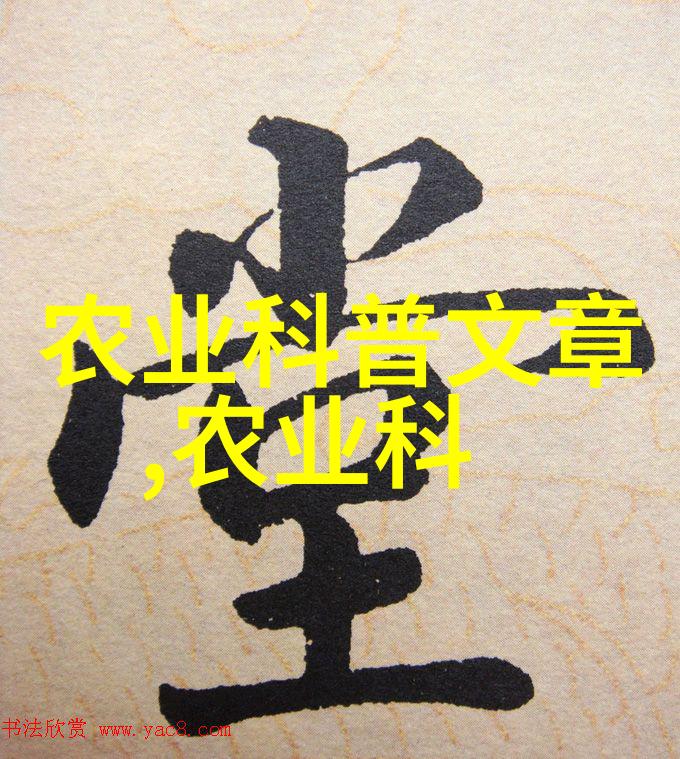 堂
农业科普文章
,农业科
书法欣赏 www.yac8.com